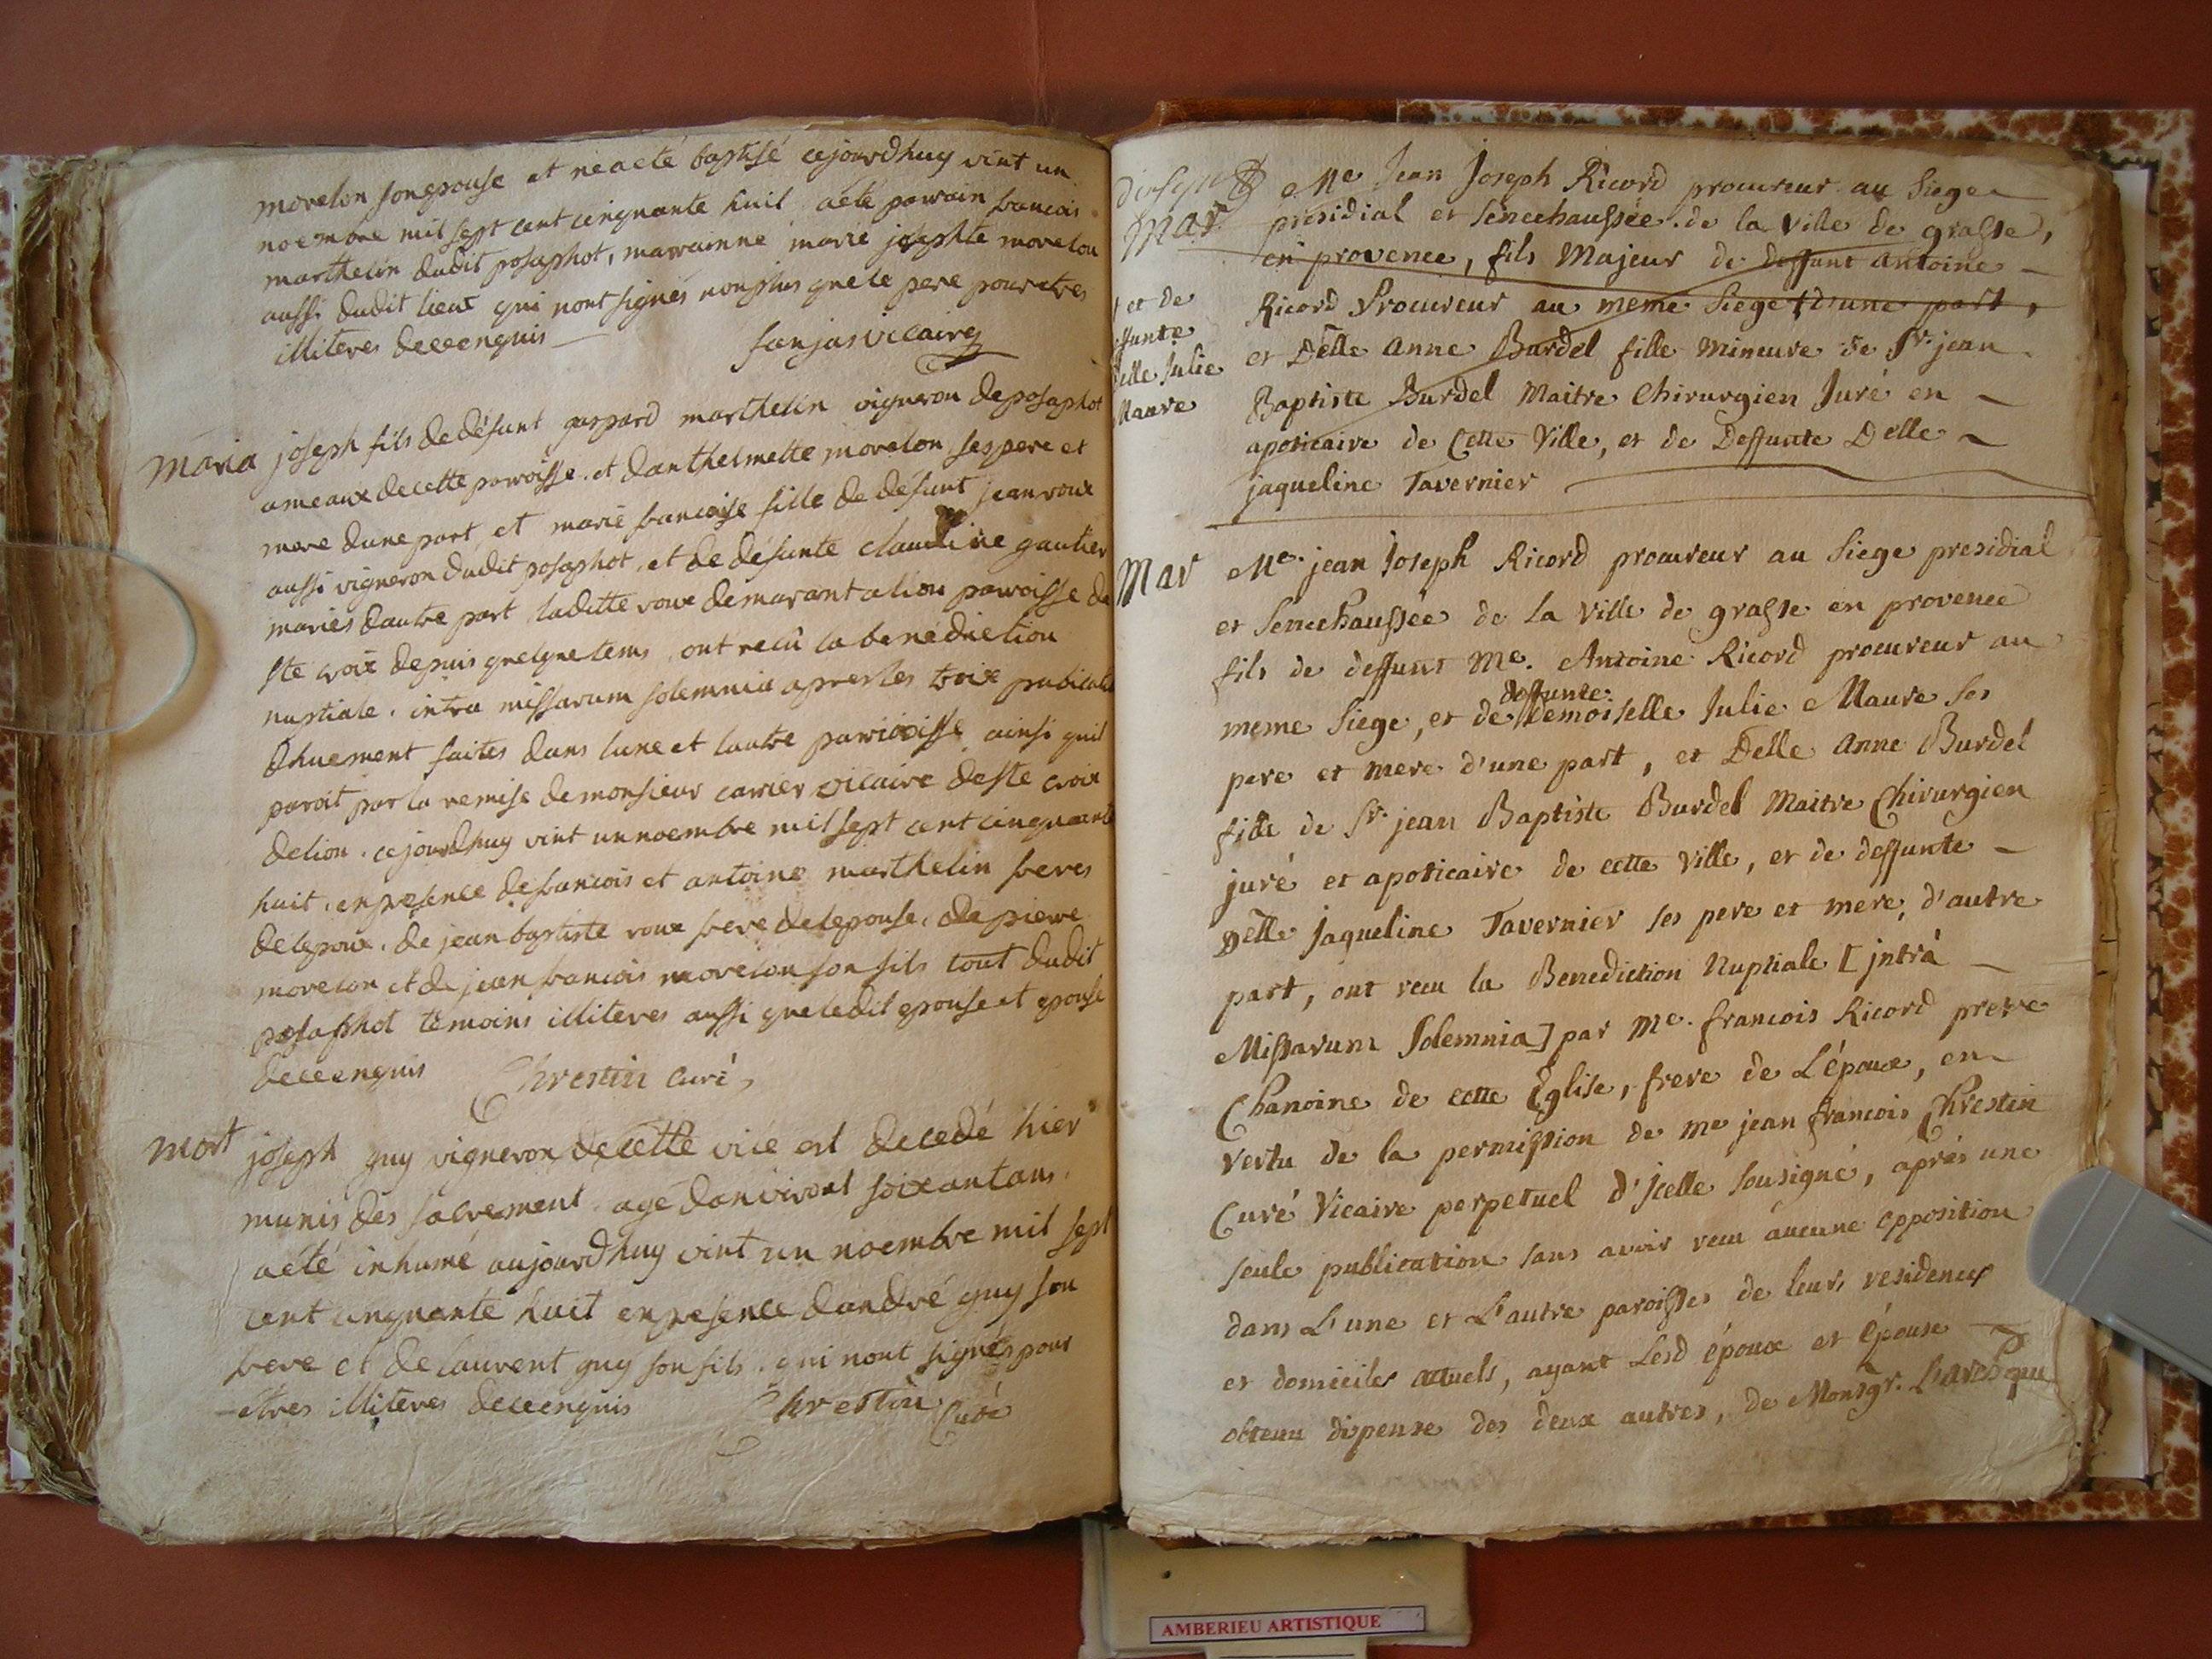 morelon son epouse et né a eté baptisé cejourdhuy vint un
noembre mil sept cent cinquante huit a été parrain francois
marthelin dudit posaphot, marrainne marie josephte morelon
aussi dudit lieux qui nont signés nonplus que le pere pour etres
illiteres de ce enquis
fanjas vicaire
Maria joseph fils de défunt gaspard marthelin vigneron de posaphot
ameaux de cette parroisse. et danthelmette morelon ses pere et
mere dune part, et marie francoise fille de défunt jean roux
aussi vigneron dudit posaphot, et de défunte claudine gautier
mariés dautre part laditte roux demarant a lion parroisse de
ste croix depuis quelque tems, ont recû la bénédiction
nuptiale. intra missarum solemnia apres les troix publicat
dhuement faites dans lune et lautre parroisse ainsi quil
paroit par la remise de monsieur carrier vicaire de ste croix
de lion. cejourdhuy vint un noembre mil sept cent cinquante
huit. en presence de francois et antoine marthelin freres
de lepoux. de jean baptiste roux frere de lepouse. de pierre
morelon et de jean francois morelon son fils tout dudit
posaphot temoins illiteres aussi que ledit epouse et epouse
de ce enquis Chrestin curé
mort joseph guy vigneron de cette vile est decedé hier
munis des sacrement agé danviront soixant ans.
a été inhumé aujourdhuy vint un noembre mil sept
cent cinquante huit en presence dandré guy son
frere et de laurent guy son fils. qui nont signés pour
etres illiteres de ce enquis Chrestin Curé
Mar Me Jean Joseph Ricord procureur au Siege
presidial et senechaussée de la Ville de grasse,
en provence, fils Majeur de deffunt antoine
Ricord Procureur au meme siege † d'une part,
et de
ffunte
delle Julie
Maure
et Delle Anne Burdel fille mineure de Sr. jean
Baptiste Burdel Maitre Chirurgien Juré en
apoticaire de Cette Ville, et de Deffunte Delle
jaqueline Tavernier
Mar Me. jean Joseph Ricord procureur au Siege presidial
et Senechaussée de la Ville de grasse en provence
fils de deffunt Me. Antoine Ricord procureur au
meme siege, et de deffunte Demoiselle Julie Maure ses
pere et mere d'une part, et Delle Anne Burdel
fille de Sr. jean Baptiste Burdel Maitre Chirurgien
juré et apoticaire de cette Ville, et de deffunte
Delle Jaqueline Tavernier ses pere et mere, d'autre
part, ont recu la Benediction Nuptiale [jntrà
Missarum Solemnia] par Me. francois Ricord pretre
Chanoine de cette Eglise, frere de L'époux, en
Vertu de la permission de Me jean francois Chrestin
Curé Vicaire perpetuel d'jcelle sousigné, aprés une
seule publication sans avoir recu aucune opposition
dans L'une et L'autre paroisses de leurs residences
et domiciles actuels, ayant Lesd époux et épouse
obtenu dispense des deux autres, de Monsgr. L'archeque
AMBERIEU ARTISTIQUE